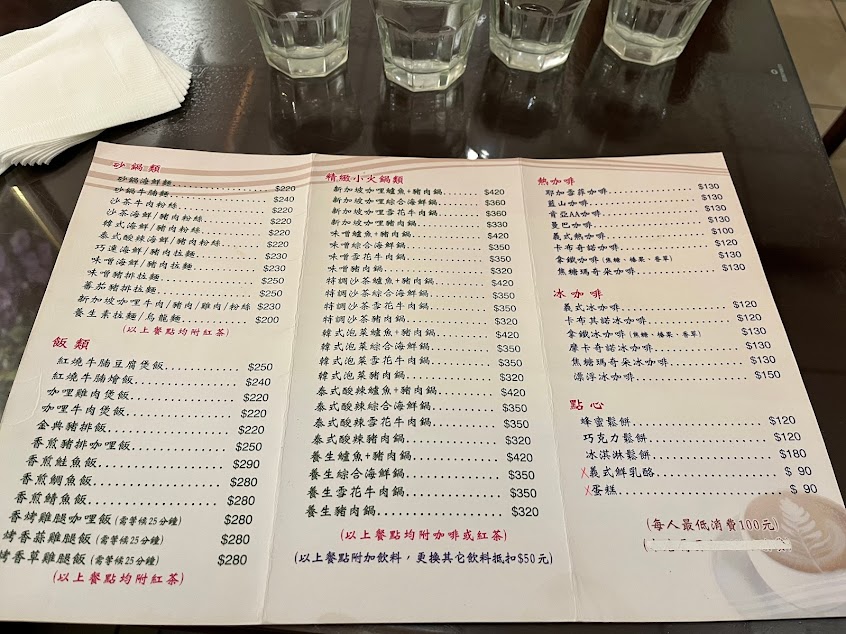 砂鍋類
砂鍋海鮮麵 $220
砂鍋牛腩麵 $240
沙茶牛肉粉絲 $220
沙茶海鮮/豬肉粉絲 $220
韓式海鮮/豬肉粉絲 $220
泰式酸辣海鮮/豬肉粉絲 $220
巧達海鮮/豬肉拉麵 $230
味噌海鮮/豬肉拉麵 $230
味噌豬排拉麵 $250
蕃茄豬排拉麵 $250
新加坡咖哩牛肉/豬肉/雞肉/粉絲 $230
養生素拉麵/烏龍麵 $200
(以上餐點均附紅茶)
飯類
紅燒牛腩豆腐煲飯 $250
紅燒牛腩燴飯 $240
咖哩雞肉煲飯 $220
咖哩牛肉煲飯 $220
金典豬排飯 $220
香煎豬排咖哩飯 $250
香煎鮭魚飯 $290
香煎鯛魚飯 $280
香煎鯖魚飯 $280
香烤雞腿咖哩飯 (需等候25分鐘) $280
烤香蒜雞腿飯 (需等候25分鐘) $280
烤香草雞腿飯 (需等候25分鐘) $280
(以上餐點均附紅茶)
精緻小火鍋類
新加坡咖哩鱸魚+豬肉鍋 $420
新加坡咖哩綜合海鮮鍋 $360
新加坡咖哩雪花牛肉鍋 $360
新加坡咖哩豬肉鍋 $330
味噌鱸魚+豬肉鍋 $420
味噌綜合海鮮鍋 $350
味噌雪花牛肉鍋 $350
味噌豬肉鍋 $320
特調沙茶鱸魚+豬肉鍋 $420
特調沙茶綜合海鮮鍋 $350
特調沙茶雪花牛肉鍋 $350
特調沙茶豬肉鍋 $320
韓式泡菜鱸魚+豬肉鍋 $420
韓式泡菜綜合海鮮鍋 $350
韓式泡菜雪花牛肉鍋 $350
韓式泡菜豬肉鍋 $320
泰式酸辣鱸魚+豬肉鍋 $420
泰式酸辣綜合海鮮鍋 $350
泰式酸辣雪花牛肉鍋 $350
泰式酸辣豬肉鍋 $320
養生鱸魚+豬肉鍋 $420
養生綜合海鮮鍋 $350
養生雪花牛肉鍋 $350
養生豬肉鍋 $320
(以上餐點均附咖啡或紅茶)
(以上餐點附加飲料，更換其它飲料抵扣$50元)
熱咖啡
耶加雪菲咖啡 $130
藍山咖啡 $130
肯亞AA咖啡 $130
曼巴咖啡 $130
義式熱咖啡 $100
卡布奇諾咖啡 $120
拿鐵咖啡 (焦糖、榛果、香草) $130
焦糖瑪奇朵咖啡 $130
冰咖啡
義式冰咖啡 $120
卡布其諾冰咖啡 $120
拿鐵冰咖啡 (焦糖、榛果、香草) $130
摩卡奇諾冰咖啡 $130
焦糖瑪奇朵冰咖啡 $130
漂浮冰咖啡 $150
點心
蜂蜜鬆餅 $120
巧克力鬆餅 $120
冰淇淋鬆餅 $180
X義式鮮乳酪 $ 90
X蛋糕 $ 90
(每人最低消費100元)